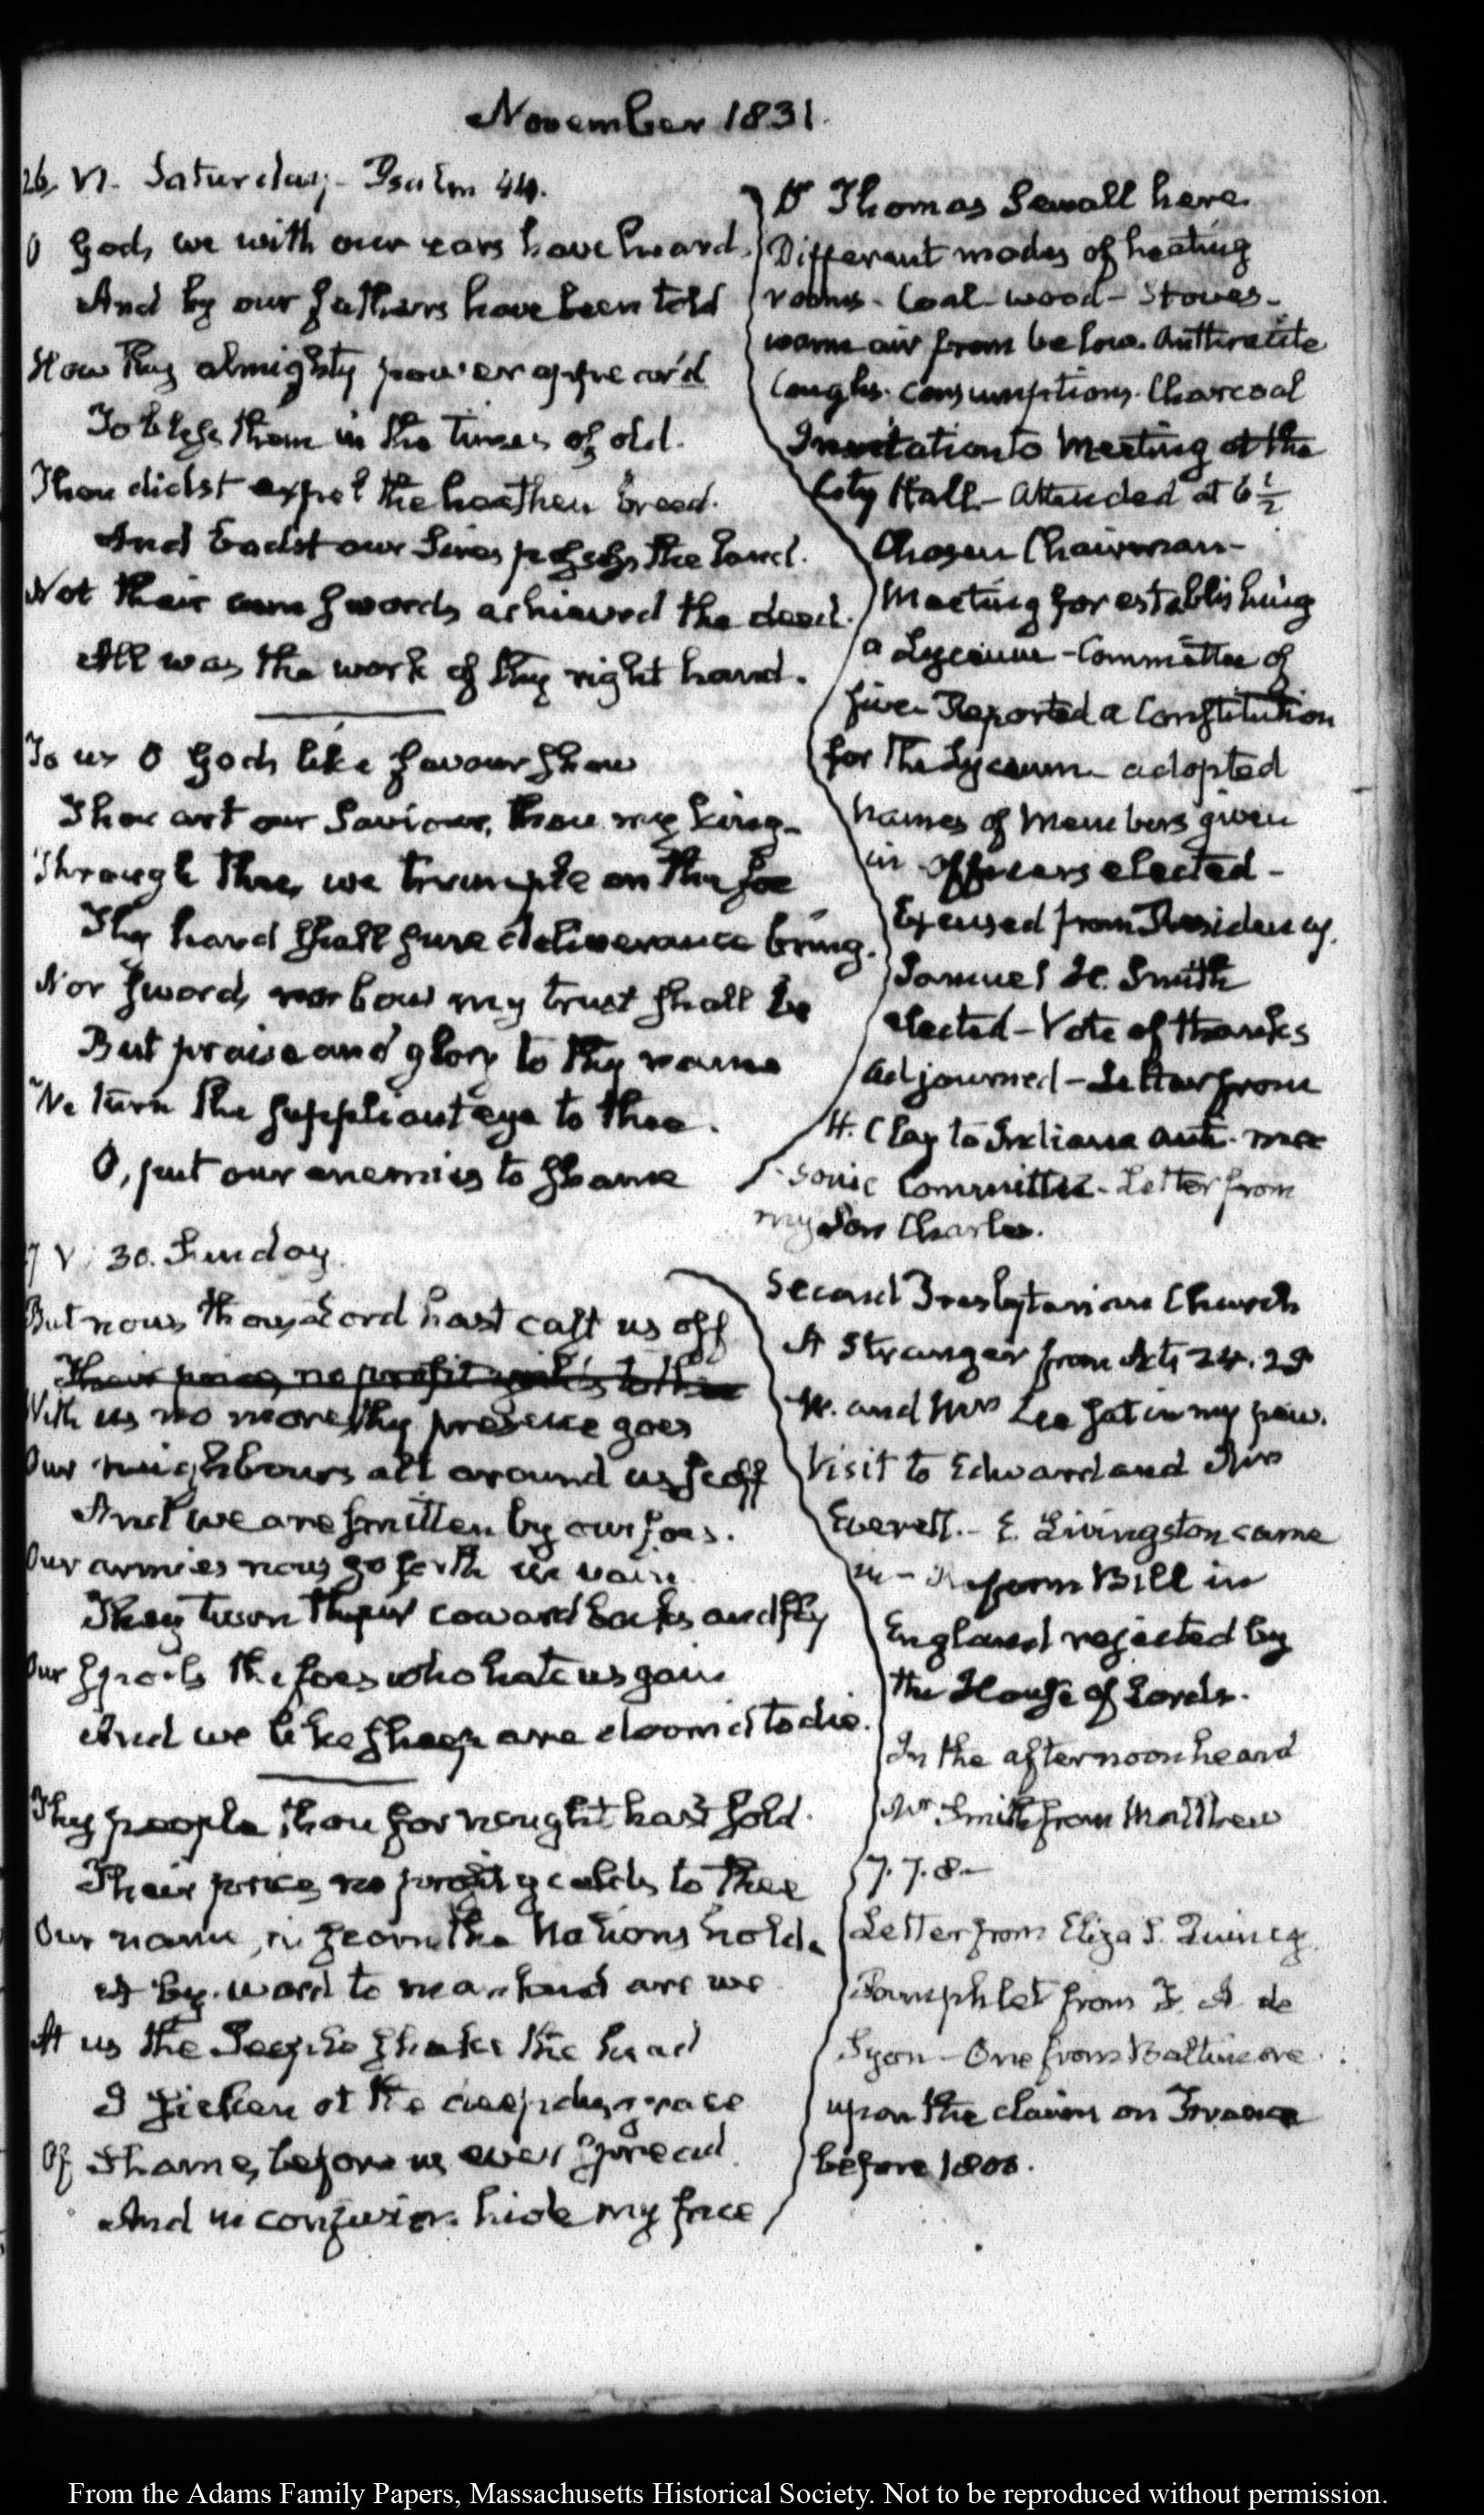 November 1831.
26. VI. Saturday - Psalm 44.
O God, we with our ears have heard.
And by our fathers have been told
How thy almighty power appear'd
To bless them in the times of old.
Thou didst expel the heathen breed.
And badst our Sires possess the land.
Not their own swords achieved the deed.
All was the work of thy right hand.
To us O God, like favour show
Thou art our Saviour, thou my King.
Through thee, we trample on the foe
Thy hand shall sure deliverance bring.
Nor sword, nor bow my trust shall be
But praise and glory to thy name
We turn the suppliant eye to thee.
O, put our enemies to shame
Dr Thomas Sewall here.
Different modes of heating
rooms - Coal - wood - Stoves -
warm air from below. Anthracite
Coughs. Consumptions. Charcoal
Invitation to Meeting at the
City Hall - Attended at 6 1/2
Chosen Chairman -
Meeting for establishing
a Lyceum - Committee of
five - Reported a Constitution
for the Lyceum - adopted
Names of Members given
in Officers elected -
Excused from Presidency.
Samuel H. Smith
elected - Vote of thanks
Adjourned - Letter from
H. Clay to Indiana Anti-mas
-sonic Committee - Letter from
my Son Charles.
27 V. 30. Sunday.
But now thou, Lord hast cast us off
Their price, no profit yields to thee
With us no more, thy presence goes
Our neighbours all around us scoff
And we are smitten by our foes.
Our armies now go forth in vain
They turn their coward backs and fly
Our spoils the foes who hate us gain
And we like sheep are doom'd to die.
Thy people, thou for nought hast sold.
Their price, no profit yields to thee
Our name, in scorn the Nations hold.
A by-word to mankind are we
At us the People shake the head
I sicken at the deep disgrace
Of Shame, before us ever spread.
And in confusion hide my face
Second Presbyterian Church
A Stranger from Acts 24. 25
Mr. and Mrs Lee sat in my pew.
Visit to Edward and Mrs
Everett. - E. Livingston came
in - Reform Bill in
England rejected by
the House of Lords.
In the afternoon heard
Mr Smith from Matthew
7. 7. 8 -
Letter from Eliza S. Quincy.
Pamphlet from F. A. de
Syon - One from Baltimore
upon the claims on France
before 1800.
From the Adams Family Papers, Massachusetts Historical Society. Not to be reproduced without permission.